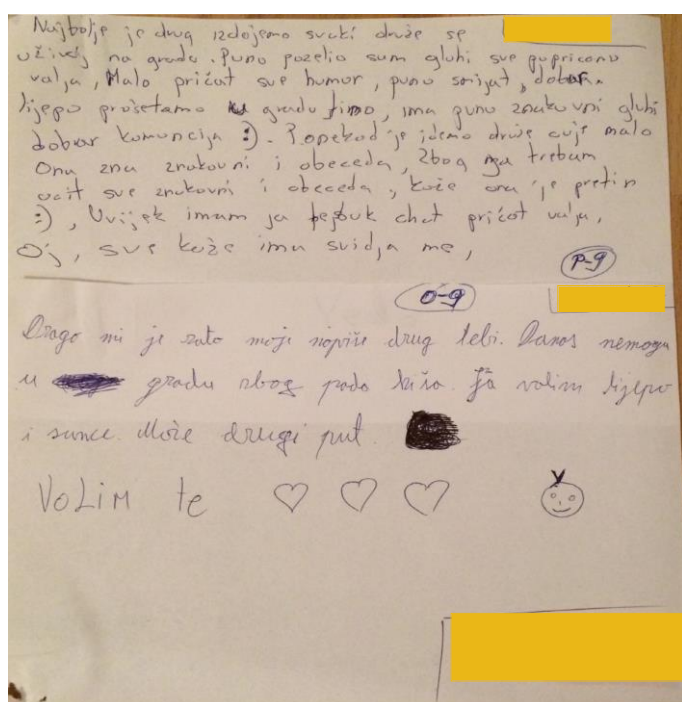 Najbolje je drug izdojemo svaki druže se
uživaj na gradu. Puno poželio sum gluhi sve
valja, Malo pričat sve humor, puno smijat, dobar.
lijepo prošetamo gradu fimo, ima puno znakovni gluhi
dobar komuncija :). Ponekad je idemo druže čuje malo
Ona zna znakovni i obeceda, Zbog trebam
učit sve znakovni i obeceda, kaže ona je pretin
:), Uvijek imam ja chat pričat valja,
Oj, sve kaže ima svidja me,
P-9
O-9
Drago mi je zato moje napiše drug tebi. Danas nemogu
u gradu zbog pada kiša. Ja volim lijepo
i sunce. Može drugi put.
VOLIM te